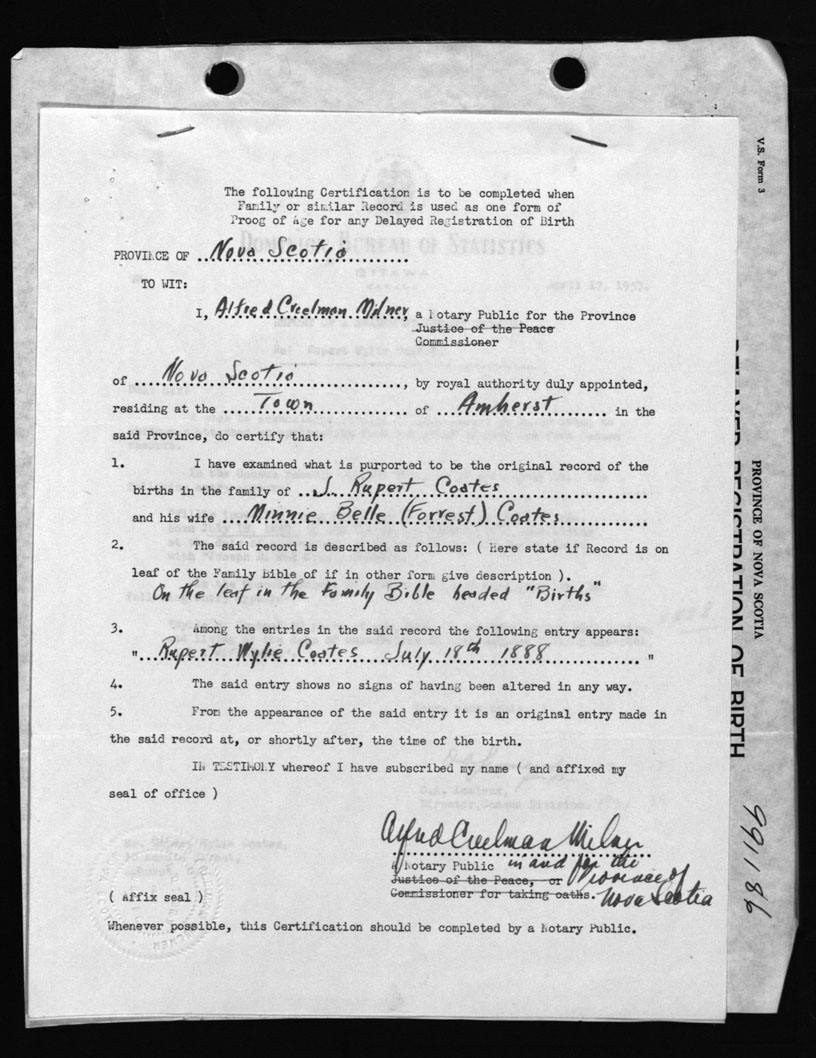 The following Certification is to be completed when
Family or similar Record is used as one form of
Proog of Age for any Delayed Registration of Birth
PROVINCE OF ..Nova Scotia..........
TO WIT:
I, Alfred Creelman Milner, a Notary Public for the Province
Justice of the Peace
Commissioner
of ...Nova Scotia..............., by royal authority duly appointed,
residing at the .....Town............... of ...Amherst........ in the
said Province, do certify that:
1. I have examined what is purported to be the original record of the
births in the family of ..J. Rupert Coates....................
and his wife ...Minnie Belle (Forrest) Coates.............
2. The said record is described as follows: ( Here state if Record is on
leaf of the Family Bible of if in other form give description ).
On the leaf in the Family Bible headed "Births"
3. Among the entries in the said record the following entry appears:
"...Rupert Wylie Coates July 18th 1888............... "
4. The said entry shows no signs of having been altered in any way.
5. From the appearance of the said entry it is an original entry made in
the said record at, or shortly after, the time of the birth.
IN TESTIMONY whereof I have subscribed my name ( and affixed my
seal of office )
Alfred Creelman Milner
A Notary Public in and for the
Justice of the Peace, or Province of
Commissioner for taking oaths. Nova Scotia
( Affix seal )
Whenever possible, this Certification should be completed by a Notary Public.
V.S. Form 3
PROVINCE OF NOVA SCOTIA
DELAYED REGISTRATION OF BIRTH
991186
DOMINION BUREAU OF STATISTICS
OTTAWA
CANADA
April 17, 1957.